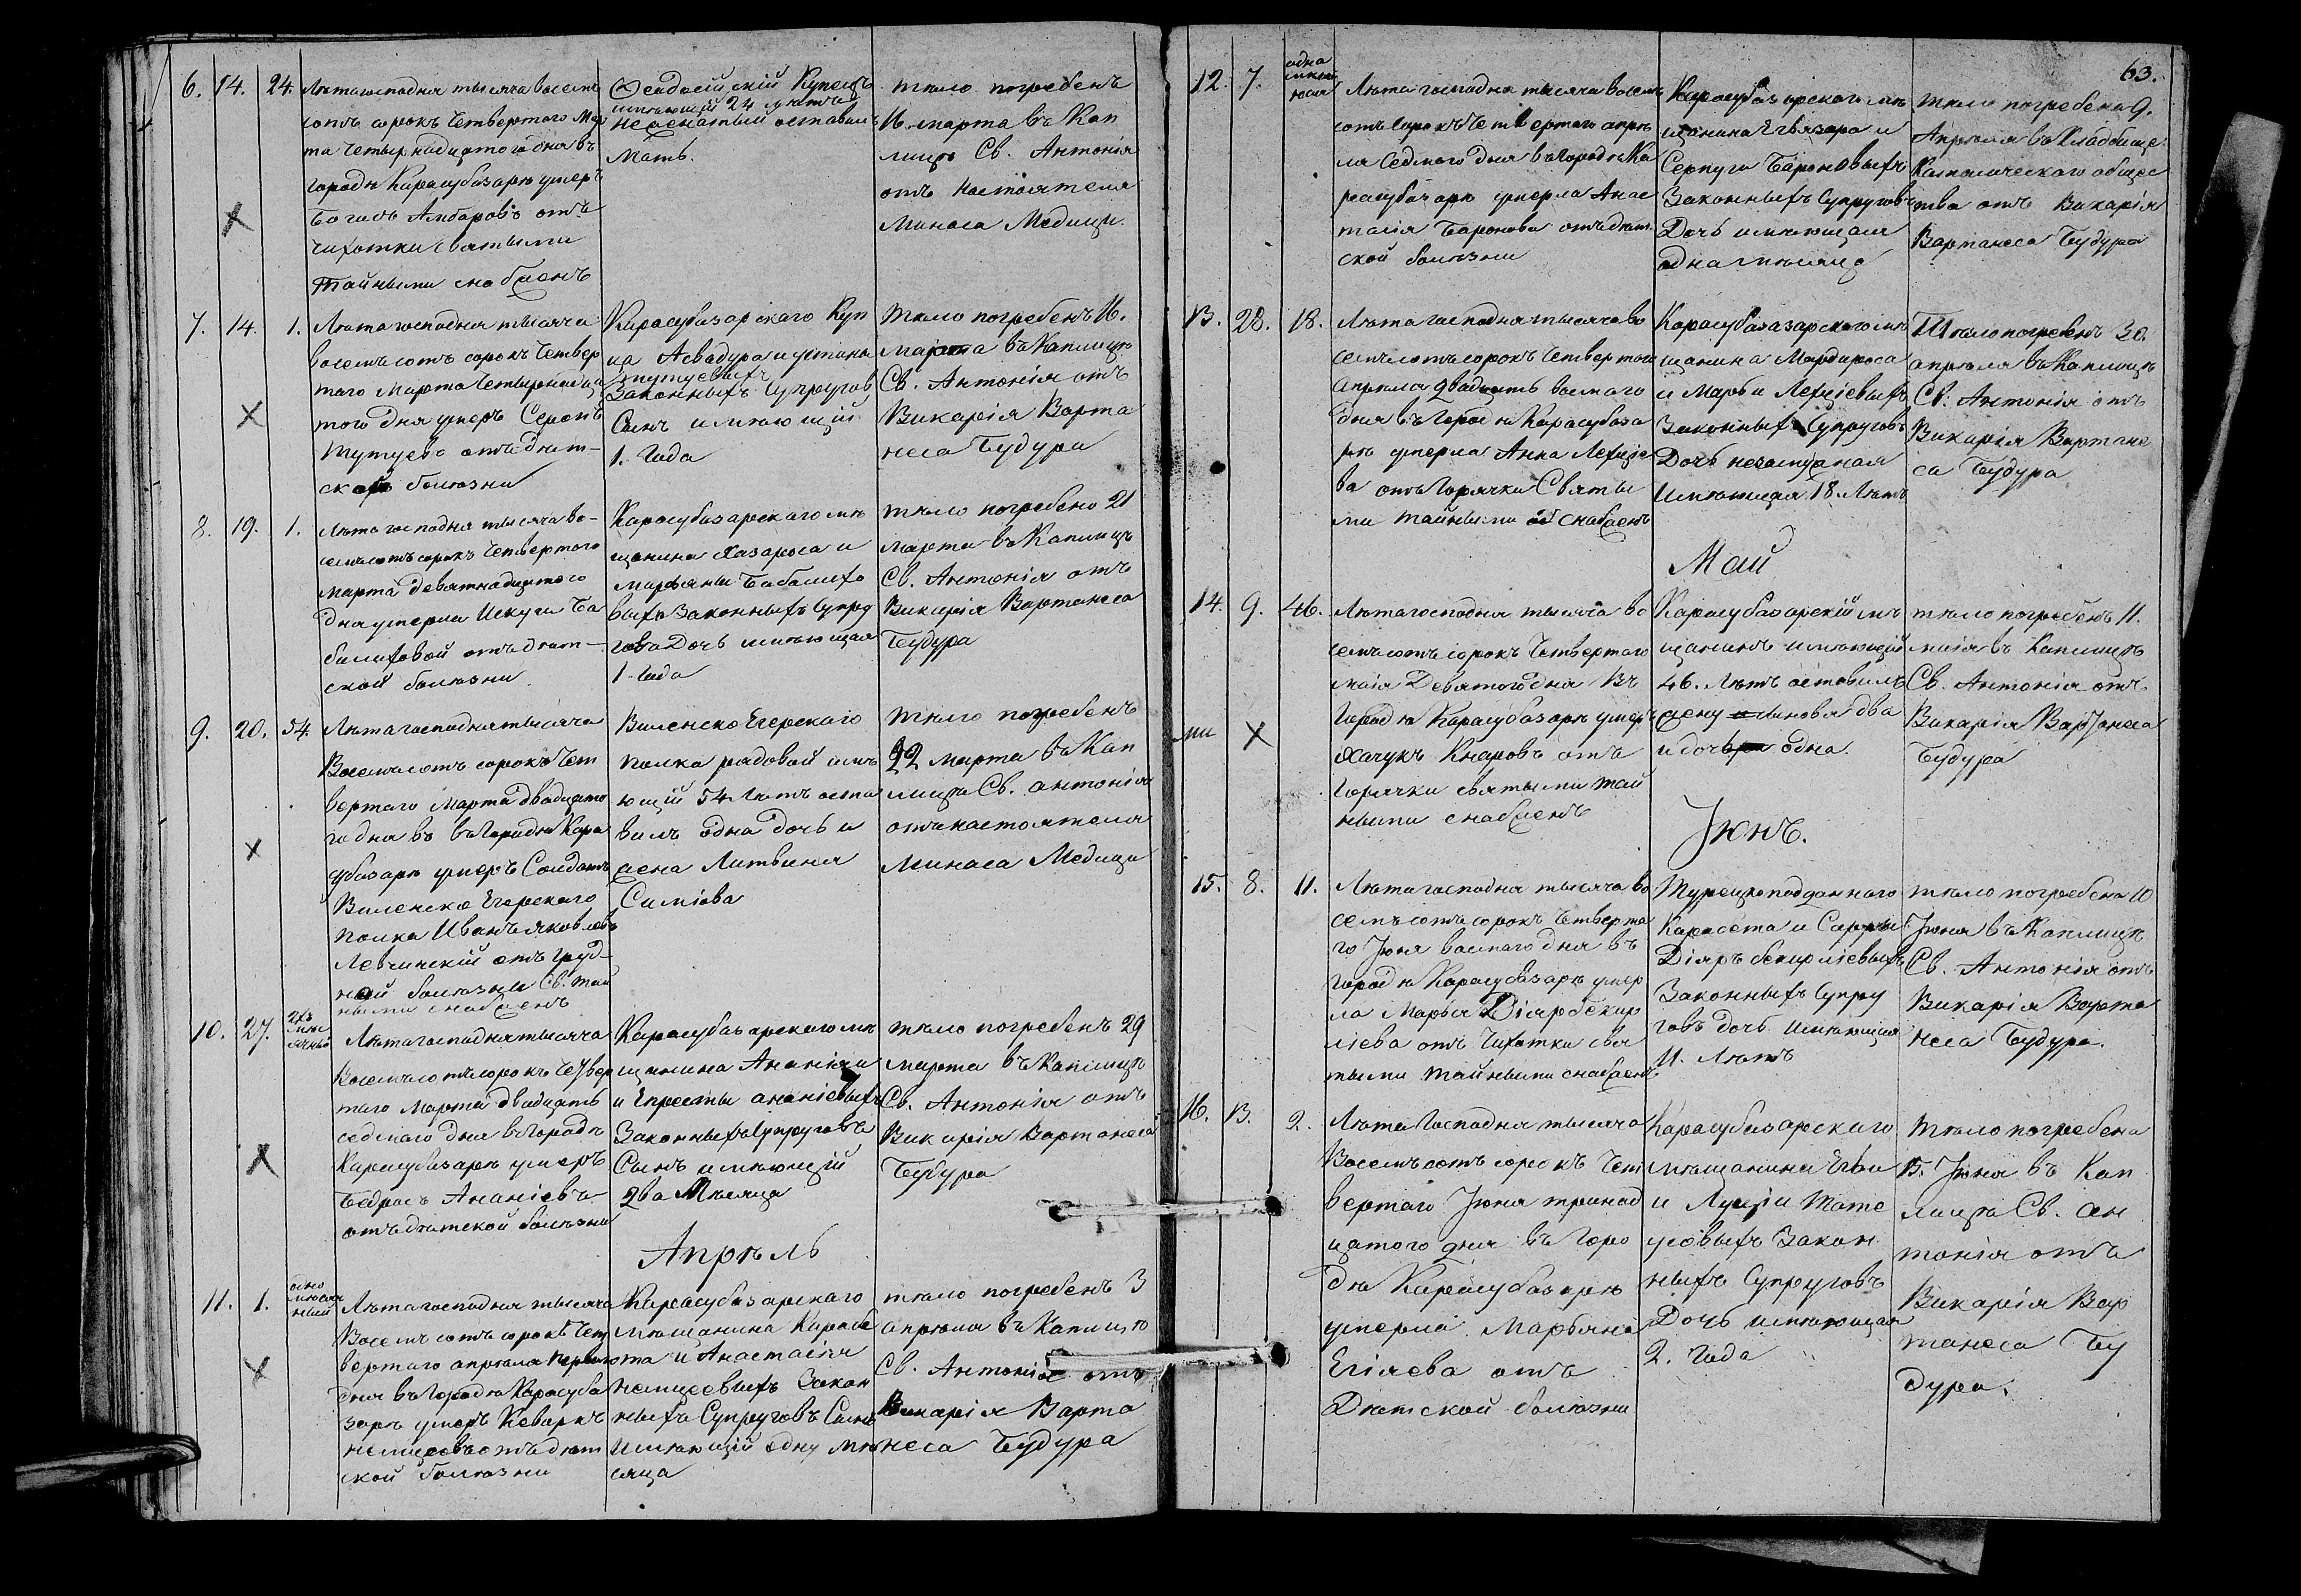 6. 14. 24.
Лѣта господня тысяча восемь
сотъ сорокъ четвертого Мар
та четырнадцатого дня въ
городѣ Карасубазарѣ умеръ
Богосъ Амбаровъ отъ
чихотки святыми
тайными снабженъ
Феодосійскій Купецъ
имѣющій 24 лѣтъ
неженатый оставилъ
Мать.
тѣло погребенъ
16 марта въ Кап
лицѣ Св. Антонія
отъ настоятеля
Минаса Медици
7. 14. 1.
Лѣта господня тысяча
восемьсотъ сорокъ четвер
того Марта четырнадца
того дня умеръ Серопъ
Тутуевъ отъ дѣт-
ской болѣзни
Карасубазарского Куп
ца Асвадура и устины
Тутуевыхъ
Законныхъ Супруговъ
Сынъ имѣющій
1. Года
тѣло погребенъ 16.
марта въ Каплицѣ
Св. Антонія отъ
Викарія Варта
неса Будура
8. 19. 1.
Лѣта господня тысяча во-
семьсотъ сорокъ четвертого
марта девятнадцатого
дня умерла Искуги Ба
балиховой отъ дѣт-
ской болѣзни
Карасубазарского мѣ
щанина Хазароса и
марьяны Бабалихо
выхъ Законныхъ Супру
говъ Дочь имѣющая
1. Года
тѣло погребено 21
марта въ Каплицѣ
Св. Антонія отъ
Викарія Вартанеса
Будура
9. 20. 54.
Лѣта господня тысяча
Восемьсотъ сорокъ чет
вертаго Марта двадцато
го дня въ въ Городѣ Кара
субазарѣ умеръ Солдатъ
Виленско Егерского
полка Иванъ яковлевъ
Левчинскій отъ груд-
ной болѣзни Св. тай
ными снабженъ
Виленско Егерского
полка рядовой имѣ
ющій 54 Лѣтъ оста
вилъ одна дочь и
жена Литвина
Симіова
тѣло погребенъ
22 марта въ Кап
лицѣ Св. антонія
отъ настоятеля
Минаса Медици
10. 27. 2хъ мѣсячный
Лѣта господня тысяча
Восемьсотъ сорокъ четвер
таго Марта двадцать
седмаго дня въ Городѣ
Карасубазарѣ умеръ
Бедросъ Ананіевъ
отъ дѣтской болѣзни
Карасубазарского мѣ
щанина Ананія и
и Епресты ананіевыхъ
Законныхъ Супруговъ
Сынъ имѣющій
два Мѣсяца
тѣло погребенъ 29
марта въ Каплицѣ
Св. Антонія отъ
Викарія Вартанеса
Будура
Апрѣль
11. 1. одно мѣсячный
Лѣта господня тысяча
Восемьсотъ сорокъ Чет
вертаго апрѣля перваго
дня въ Городѣ Карасуба
зарѣ умеръ Кеваркъ
немцеевъ отъ дѣт
ской болѣзни
Карасубазарского
мѣщанина Карабе
та и Анастасія
Немцеевыхъ Закон
ныхъ Супруговъ Сынъ
имѣющій одну мѣ
сяца
тѣло погребенъ 3
апрѣля въ Каплицѣ
Св. Антонія отъ
Викарія Варта
неса Будура
63.
12. 7.
Лѣта господня тысяча восемь
сотъ сорокъ четвертого апрѣ
ля Седмого дня въ городѣ Ка
расубазарѣ умерла Анас
тасія Баронова отъ дѣт
ской болѣзни
Карасубазарского мѣ
щанина Егвязара и
Серпуги Бароновыхъ
Законныхъ Супруговъ
Дочь имѣющая
одна мѣсяца
тѣло погребено 9.
Апрѣля въ Кладбище
Католическаго общес
тва отъ Викарія
Вартанеса Будура
13. 28. 18.
Лѣта господня тысяча во
семьсотъ сорокъ четвертого
Апрѣля двадцать восмаго
дня въ городѣ Карасубаза
рѣ умерла Анна Лехціе
ва отъ Горячки Святы
ми тайными снабженъ
Карасубазазарского мѣ
щанина Мардироса
и Марьи Лехціевыхъ
Законныхъ Супруговъ
Дочь незамужная
имѣющая 18. Лѣтъ
Тѣло погребенъ 30.
апрѣля въ Каплицѣ
Св. Антонія отъ
Викарія Вартане
са Будура
Май
14. 9. 46.
Лѣта господня тысяча во
семьсотъ сорокъ четвертого
маія Девятого дня въ
Городѣ Карасубазарѣ умеръ
Хачукъ Кнаровъ отъ
Горячки святыми тай
ными снабженъ
Карасубазарскій мѣ
щанинъ имѣющій
46. Лѣтъ оставилъ
жену сыновья два
и дочь одна.
тѣло погребенъ 11.
маія въ Каплицѣ
Св. Антонія отъ
Викарія Вартанеса
Будура
Іюнь.
15. 8. 11.
Лѣта господня тысяча во
семьсотъ сорокъ четверта
го Іюня восмаго дня въ
городѣ Карасубазарѣ умер
ла Марья Діярбекир
ліева отъ Чихотки свя
тыми тайными снабженъ
Турецкоподданного
Карабета и Сарры
Діярбекирліевыхъ
Законныхъ Супру
говъ дочь имѣющая
11. Лѣтъ
тѣло погребена 10
Іюня въ Каплицѣ
Св. Антонія отъ
Викарія Варта
неса Будура.
16. 13. 2.
Лѣта Господня тысяча
Восемьсотъ сорокъ Чет
вертаго Іюня тринад
цатого дня въ Горо
дѣ Карасубазарѣ
умерла Марьяна
Егіяева отъ
Дѣтской болѣзни
Карасубазарского
мѣщанина Егіи
и Луціи Мате
усовыхъ Закон
ныхъ Супруговъ
Дочь имѣющая
2. Года
тѣло погребена
15. Іюня въ Кап
лицѣ Св. Ан
тонія отъ
Викарія Вар
танеса Бу
дура.